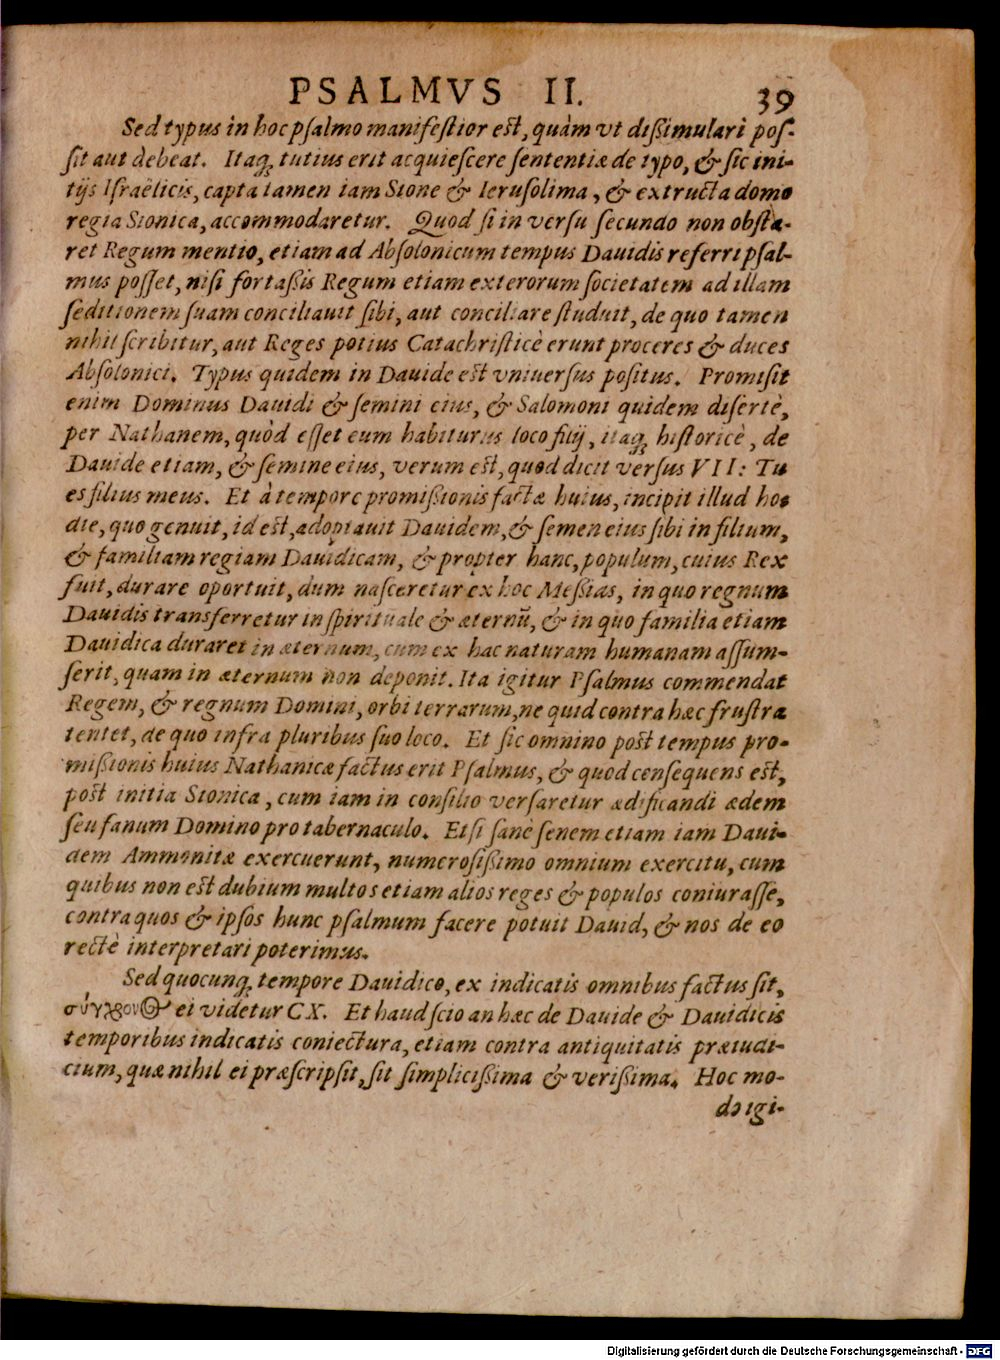 PSALMVS II. 39
Sed typus in hoc psalmo manifestior est, quàm vt dißimulari pos-
sit aut debeat. Itaq; tutius erit acquiescere sententiæ de typo, & sic ini-
tijs Israëlicis, capta tamen iam Sione & Ierusolima, & extructa domo
regia Sionica, accommodaretur. Quod si in versu secundo non obsta-
ret Regum mentio, etiam ad Absolonicum tempus Dauidis referri psal-
mus posset, nisi fortaßis Regum etiam exterorum societatem ad illam
seditionem suam conciliauit sibi, aut conciliare studuit, de quo tamen
nihil scribitur, aut Reges potius Catachristicè erunt proceres & duces
Absolonici. Typus quidem in Dauide est vniuersus positus. Promisit
enim Dominus Dauidi & semini eius, & Salomoni quidem disertè,
per Nathanem, quòd esset eum habiturus loco filij, itaq; historicè, de
Dauide etiam, & semine eius, verum est, quod dicit versus VII: Tu
es filius meus. Et à tempore promißionis factæ huius, incipit illud ho-
die, quo genuit, id est, adoptauit Dauidem, & semen eius sibi in filium,
& familiam regiam Dauidicam, & propter hanc, populum, cuius Rex
fuit, durare oportuit, dum nasceretur ex hoc Meßias, in quo regnum
Dauidis transferretur in spirituale & æternũ, & in quo familia etiam
Dauidica duraret in æternum, cum ex hac naturam humanam assum-
serit, quam in æternum non deponit. Ita igitur Psalmus commendat
Regem, & regnum Domini, orbi terrarum, ne quid contra hæc frustra
tentet, de quo infra pluribus suo loco. Et sic omnino post tempus pro-
mißionis huius Nathanicæ factus erit Psalmus, & quod consequens est,
post initia Sionica, cum iam in consilio versaretur ædificandi ædem
seu fanum Domino pro tabernaculo. Etsi sanè senem etiam iam Daui-
dem Ammonitæ exercuerunt, numerosißimo omnium exercitu, cum
quibus non est dubium multos etiam alios reges & populos coniurasse,
contra quos & ipsos hunc psalmum facere potuit Dauid, & nos de eo
rectè interpretari poterimus.
Sed quocunq; tempore Dauidico, ex indicatis omnibus factus sit,
σύγχρονΘ ei videtur CX. Et haud scio an hæc de Dauide & Dauidicis
temporibus indicatis coniectura, etiam contra antiquitatis præiudi-
cium, quæ nihil ei præscripsit, sit simplicißima & verißima. Hoc mo-
do igi-
Digitalisierung gefördert durch die Deutsche Forschungsgemeinschaft - DFG